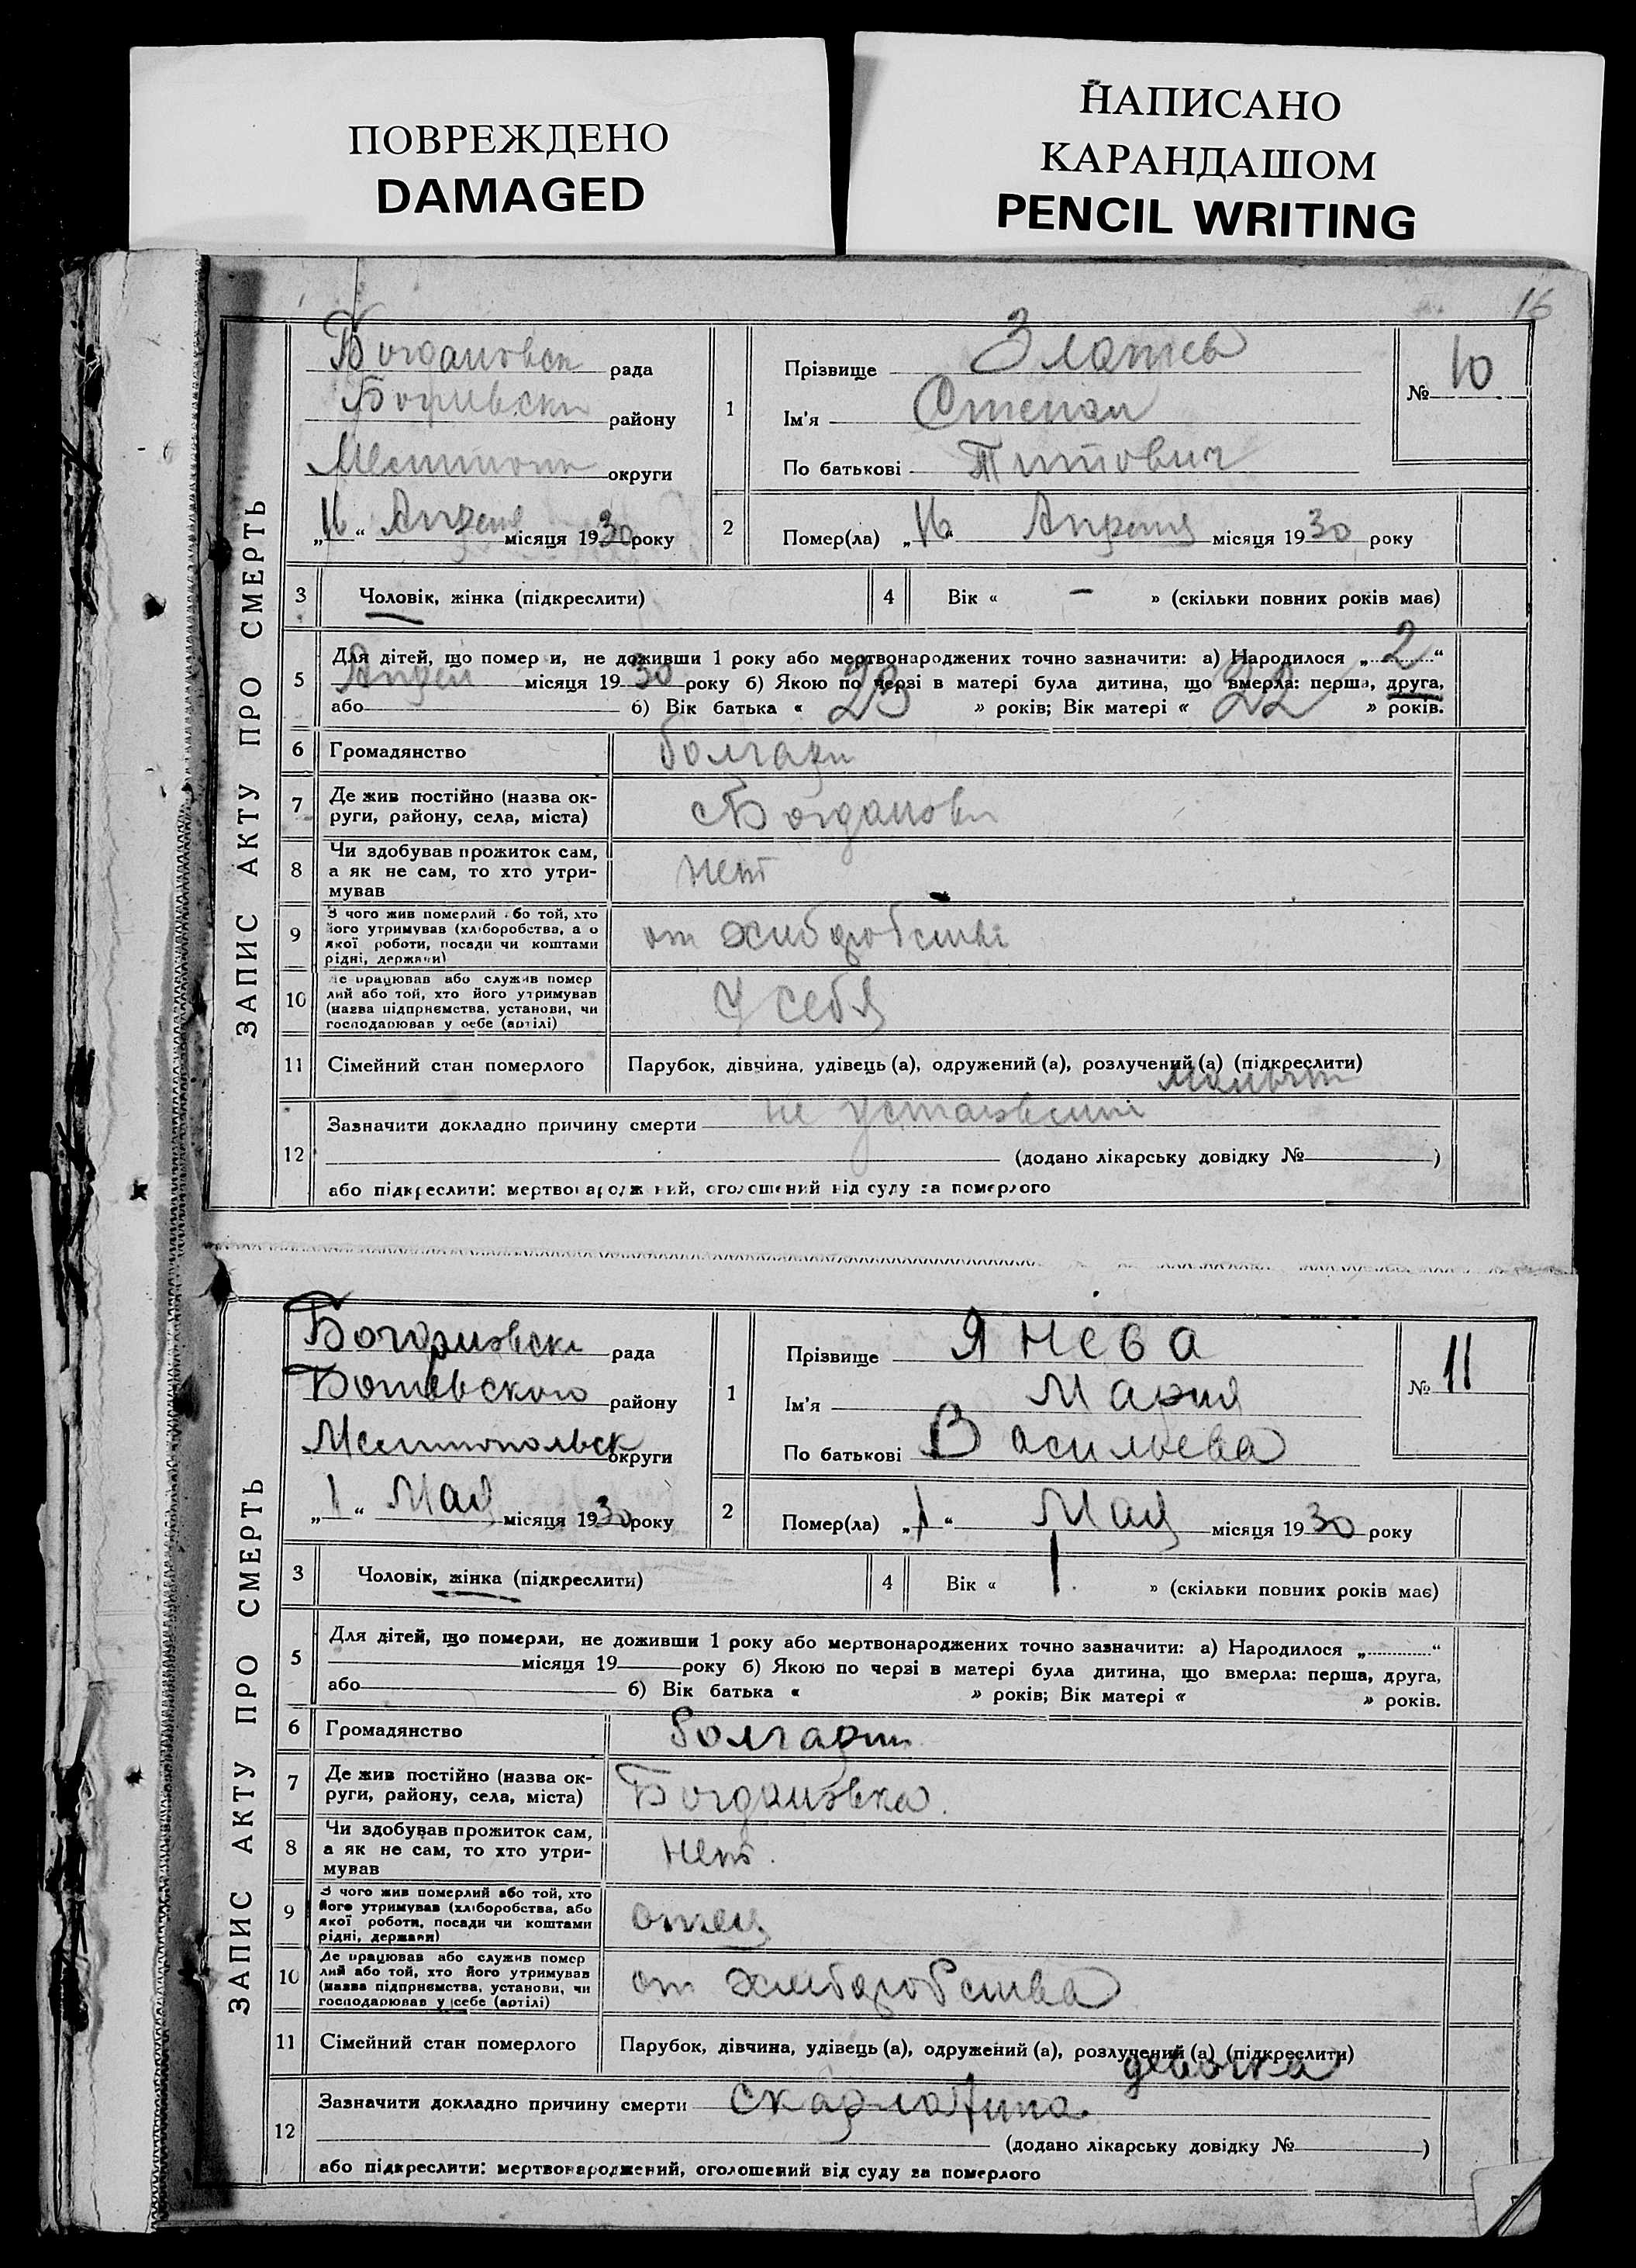 ПОВРЕЖДЕНО
DAMAGED
НАПИСАНО
КАРАНДАШОМ
PENCIL WRITING
16
ЗАПИС АКТУ ПРО СМЕРТЬ
Богдановск рада
району
округи
„16“ Апреля місяця 1930 року
1
Прізвище Златев
Ім'я Степан
По батькові Титович
№ 10
2
Помер(ла) „16“ Апреля місяця 1930 року
3 Чоловік, жінка (підкреслити)
4 Вік « – » (скільки повних років має)
5 Для дітей, що помер и, не доживши 1 року або мертвонароджених точно зазначити: а) Народилося „2“
місяця 1930 року б) Якою по черзі в матері була дитина, що вмерла: перша, друга,
або б) Вік батька « 23 » років; Вік матері « 22 » років.
6 Громадянство болгари
7 Де жив постійно (назва ок-
руги, району, села, міста) с Богданови
8 Чи здобував прожиток сам,
а як не сам, то хто утри-
мував нет
9 З чого жив померлий або той, хто
його утримував (хліборобства, а о
якої роботи, посади чи коштами
рідні, держави) от
10 Де працював або служив помер
лий або той, хто його утримував
(назва підприємства, установи, чи
господарював у себе (артілі) У себя
11 Сімейний стан померлого Парубок, дівчина, удівець (а), одружений (а), розлучений (а) (підкреслити)
12 Зазначити докладно причину смерти не
(додано лікарську довідку № )
або підкреслити: мертвонароджений, оголошений від суду за померлого
ЗАПИС АКТУ ПРО СМЕРТЬ
Богдановск рада
Ботевского району
Мелитопольск округи
„1“ Мая місяця 1930 року
1
Прізвище Янева
Ім'я Мария
По батькові Васильева
№ 11
2
Помер(ла) „1“ Мая місяця 1930 року
3 Чоловік, жінка (підкреслити)
4 Вік « 1 » (скільки повних років має)
5 Для дітей, що померли, не доживши 1 року або мертвонароджених точно зазначити: а) Народилося „ “
місяця 19 року б) Якою по черзі в матері була дитина, що вмерла: перша, друга,
або б) Вік батька « » років; Вік матері « » років.
6 Громадянство болгари
7 Де жив постійно (назва ок-
руги, району, села, міста) Богдановка.
8 Чи здобував прожиток сам,
а як не сам, то хто утри-
мував нет.
9 З чого жив померлий або той, хто
його утримував (хліборобства, або
якої роботи, посади чи коштами
рідні, держави) отец
10 Де працював або служив помер
лий або той, хто його утримував
(назва підприємства, установи, чи
господарював у себе (артілі) от хлиборобства
11 Сімейний стан померлого Парубок, дівчина, удівець (а), одружений (а), розлучений (а) (підкреслити)
девочка
12 Зазначити докладно причину смерти скарлатина.
(додано лікарську довідку № )
або підкреслити: мертвонароджений, оголошений від суду за померлого